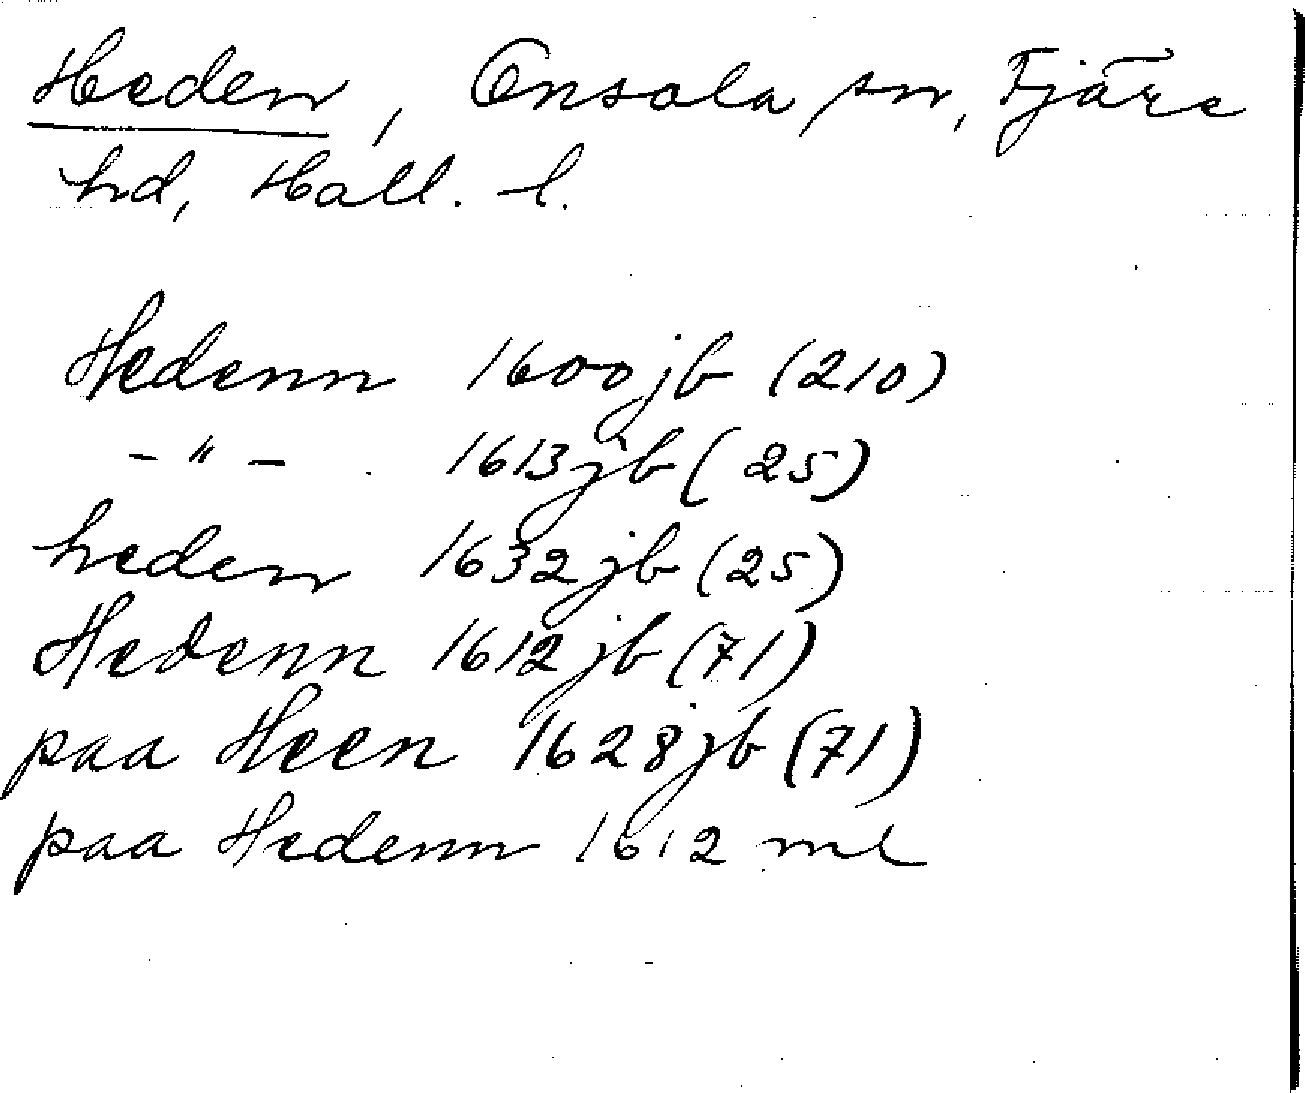 Heden, Onsala sn, Fjäre
hd, Hall. l.
Hedenn 1600 jb (210)
- " - 1613 jb (25)
heden 1632 jb (25)
Hedenn 1612 jb (71)
paa Heen 1628 jb (71)
paa Hedenn 1612 ml